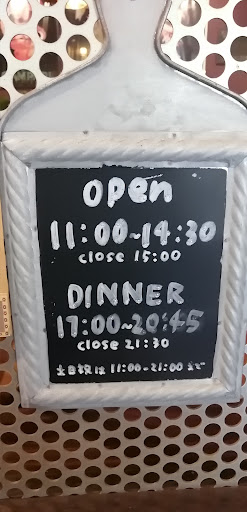 open
11:00~14:30
close 15:00
DINNER
17:00~20:45
close 21:30
土日祝は11:00~21:00まで